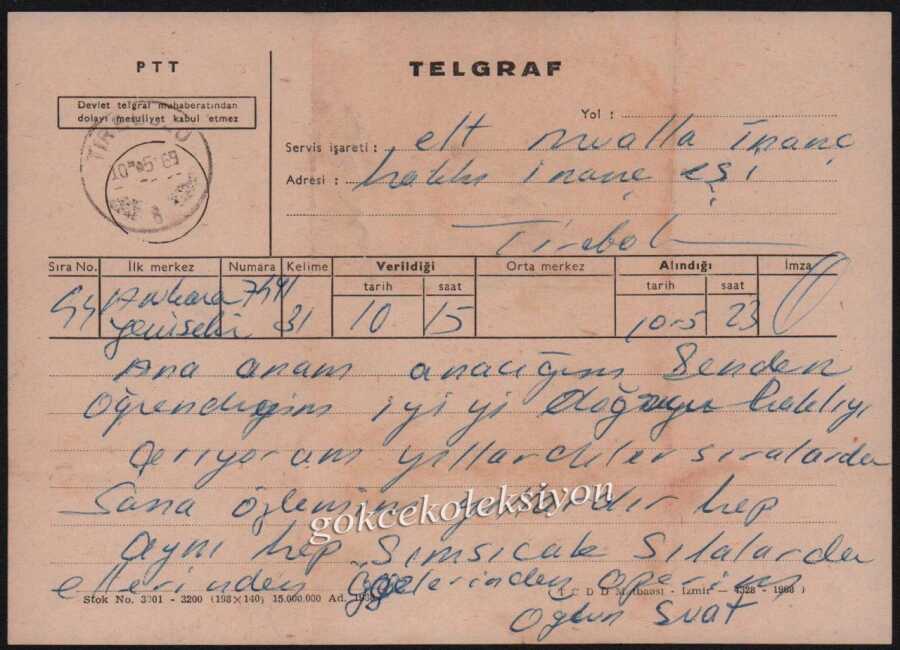 PTT
TELGRAF
Devlet telgraf muhaberatından
dolayı mesuliyet kabul etmez
TİREBOLU
10 5 69
Yol :
Servis işareti : elt Mualla İnanç
Adresi : Hakkı İnanç eşi
Tirebolu
Sıra No. İlk merkez Numara Kelime Verildiği Orta merkez Alındığı İmza
tarih saat tarih saat
Ankara
Yenişehir 31 10 15 10-5 23
Ana anam anacığım Senden
Öğrendiğim iyiyi doğruyu haklıyı
yıllardır sıralarda
Sana özlemim hep
Aynı hep Sımsıcak Sılalarda
ellerinden öperim
Oğlun Suat
gokcekoleksiyon
Stok No. 3301 - 3200 (198×140) 15.000.000 Ad.
T C D D Matbaası - İzmir — 4328 - 1968 )